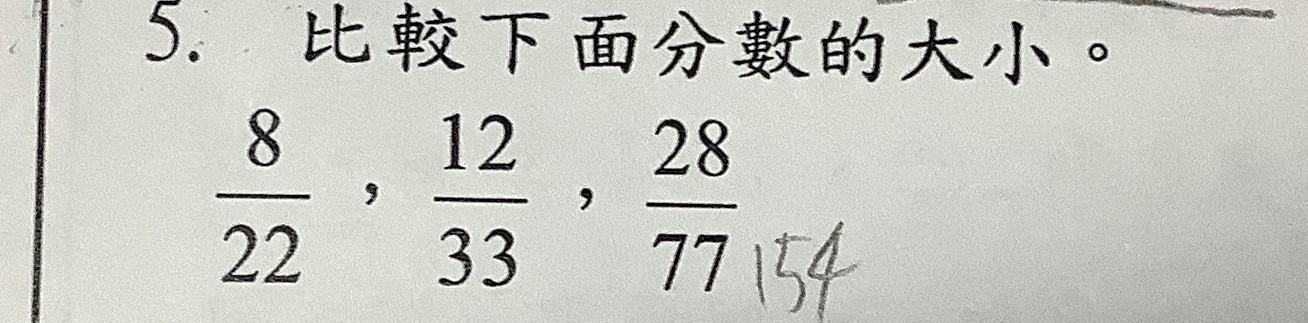 5. 比較下面分數的大小。
8/22 , 12/33 , 28/77 154